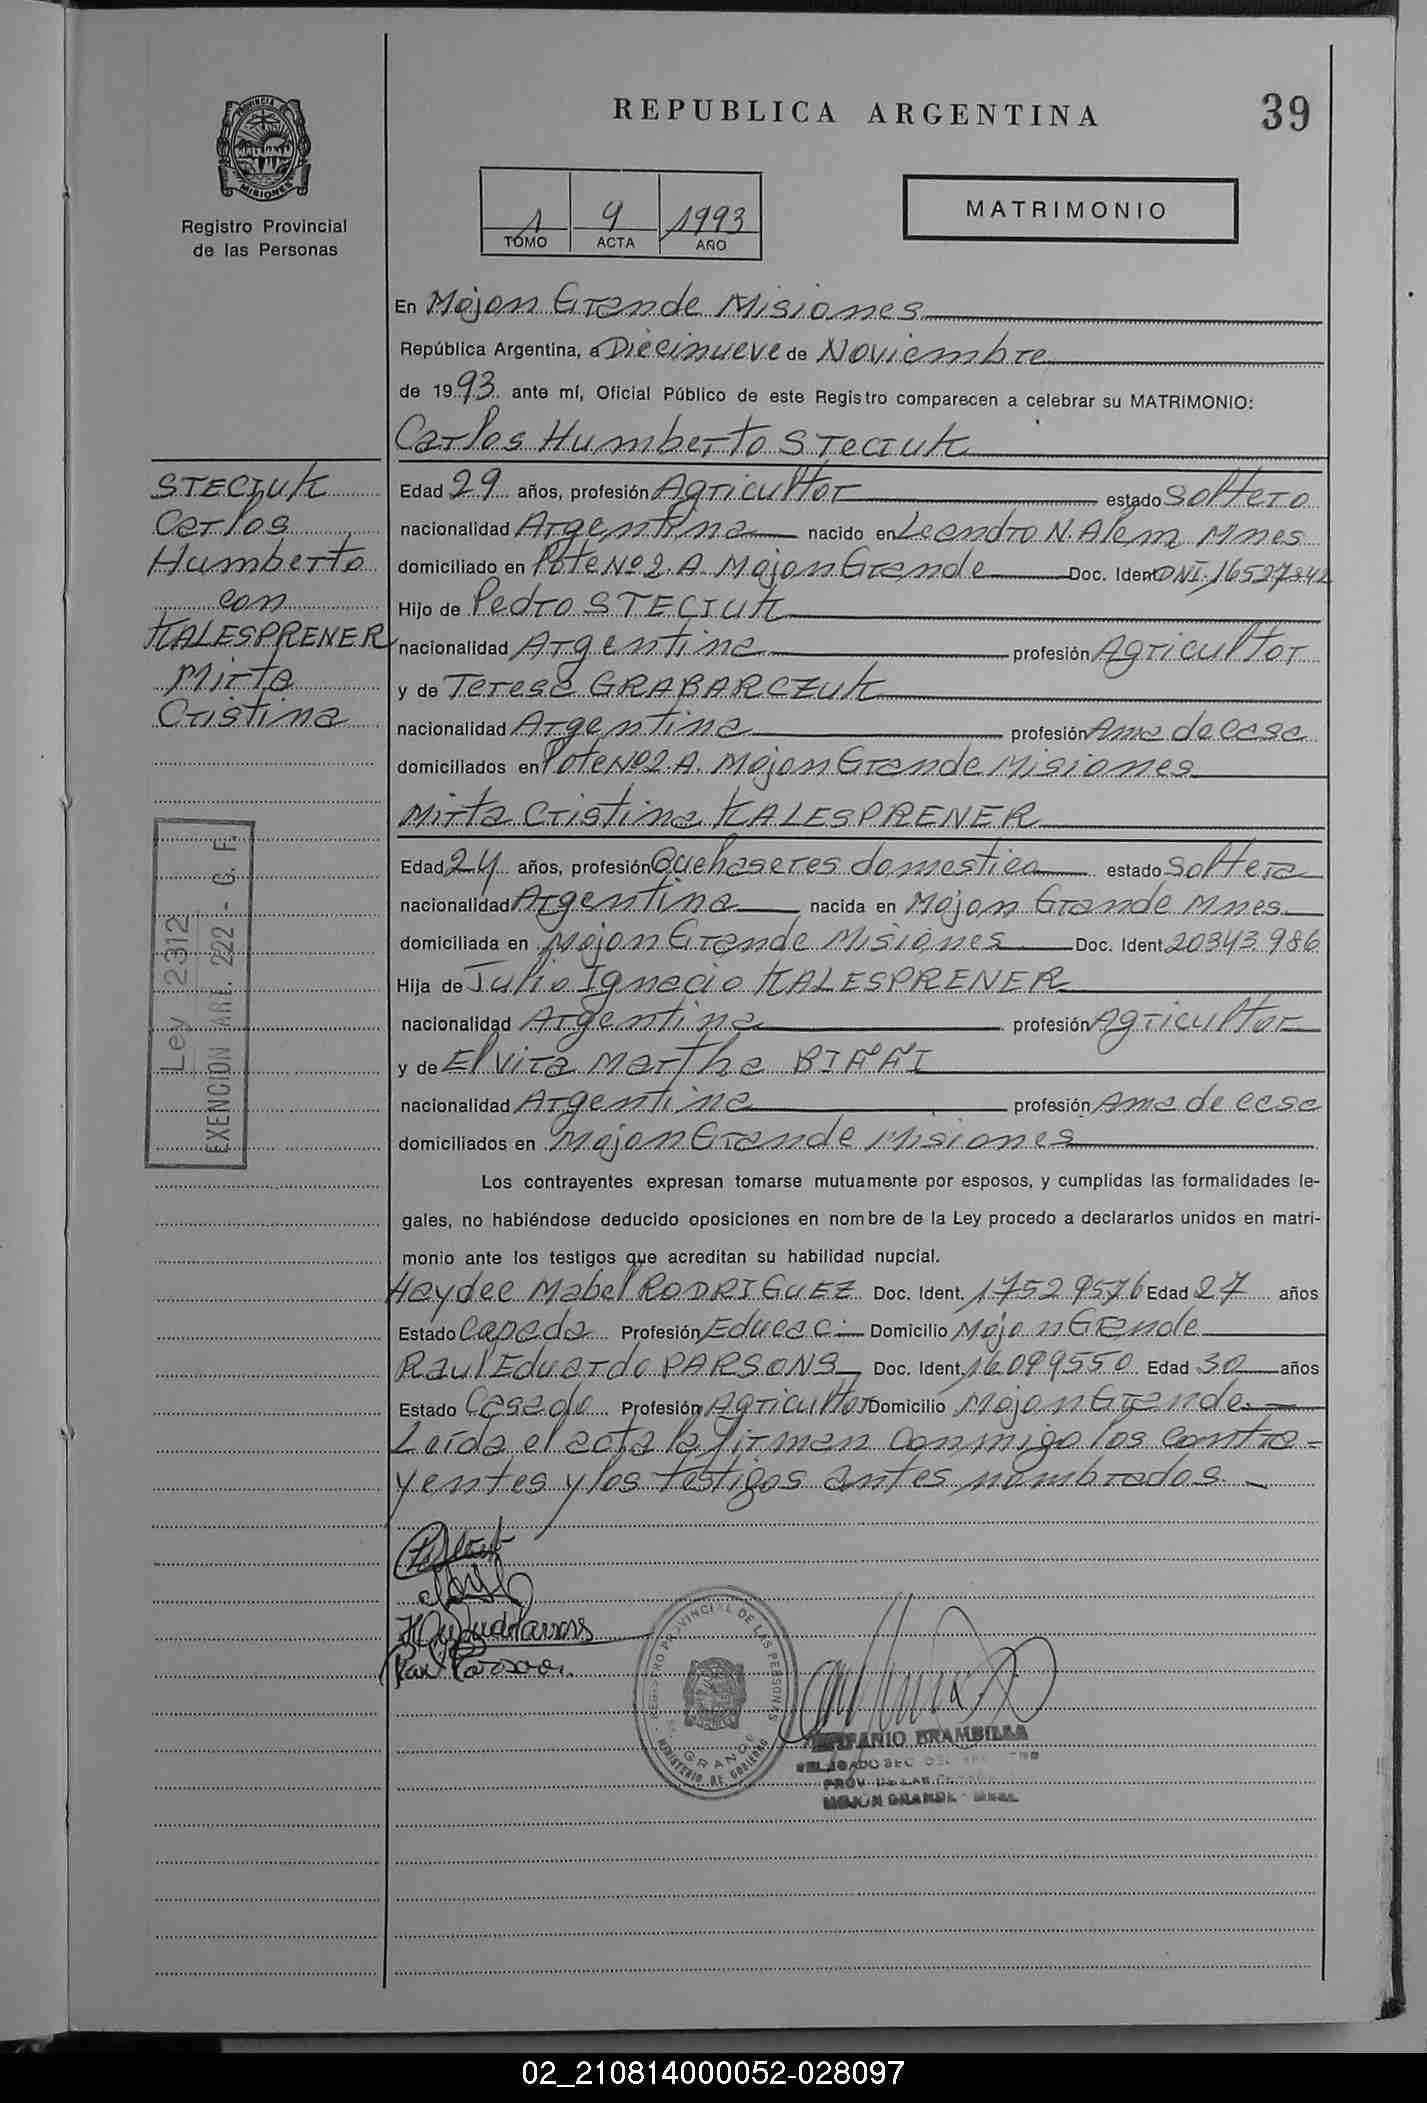 PROVINCIA DE
MISIONES
Registro Provincial
de las Personas
REPUBLICA ARGENTINA
39
1 9 1993
TOMO ACTA AÑO
MATRIMONIO
En Mojon Grande Misiones
República Argentina, a Diecinueve de Noviembre
de 1993 ante mí, Oficial Público de este Registro comparecen a celebrar su MATRIMONIO:
Carlos Humberto STECIUK
STECIUK
Carlos
Humberto
con
KALESPRENER
Mirta
Cristina
Edad 29 años, profesión Agricultor estado Soltero
nacionalidad Argentina nacido en Leandro N. Alem Mnes
domiciliado en Lote Nº 2. A. Mojon Grande Doc. Ident DNI. 16527842
Hijo de Pedro STECIUK
nacionalidad Argentina profesión Agricultor
y de Teresa GRABARCZUK
nacionalidad Argentina profesión Ama de casa
domiciliados en Lote Nº 2. A. Mojon Grande Misiones
Mirta Cristina KALESPRENER
Edad 24 años, profesión Quehaseres domestica estado Soltera
nacionalidad Argentina nacida en Mojon Grande Mnes
domiciliada en Mojon Grande Misiones Doc. Ident. 20343.986
Hija de Julio Ignacio KALESPRENER
nacionalidad Argentina profesión Agricultor
y de Elvira Martha
nacionalidad Argentina profesión Ama de casa
domiciliados en Mojon Grande Misiones
Ley 2312
EXENCION ART. 222 - C. F.
Los contrayentes expresan tomarse mutuamente por esposos, y cumplidas las formalidades le-
gales, no habiéndose deducido oposiciones en nombre de la Ley procedo a declararlos unidos en matri-
monio ante los testigos que acreditan su habilidad nupcial.
Haydee Mabel RODRIGUEZ Doc. Ident. 17529576 Edad 27 años
Estado Capada Profesión Educac: Domicilio Mojon Grande
Raul Eduardo PARSONS Doc. Ident. 16099550 Edad 30 años
Estado Casado Profesión Agricultor Domicilio Mojon Grande
Leída el acta la firman conmigo los contra=
yentes y los testigos antes nombrados.
Raul Parsons
REGISTRO PROVINCIAL DE LAS PERSONAS
GRANDE
MINISTERIO DE GOBIERNO
BRAMBILLA
MOJON GRANDE - MNES.
02_210814000052-028097